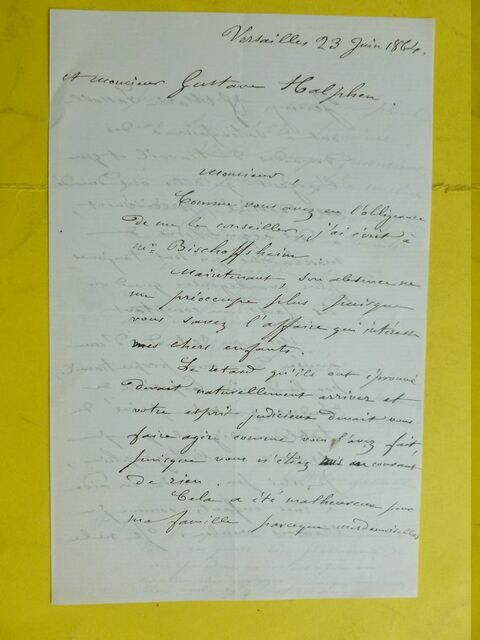 Versailles 23 Juin 1864.
A Monsieur Gustave Halphen.
Monsieur,
Comme vous avez eu l'obligeance
de me le conseiller, j'ai écrit à
Mr. Bischoffsheim.
Maintenant, son absence ne
me préoccupe plus, puisque
vous savez l'affaire qui intéresse
mes chers enfants.
Le retard qu'ils ont éprouvé
devait naturellement arriver et
votre esprit judicieux devait vous
faire agir comme vous l'avez fait,
puisque vous n'étiez mis au courant
de rien.
Cela a été malheureux pour
ma famille parceque mesdemoiselles